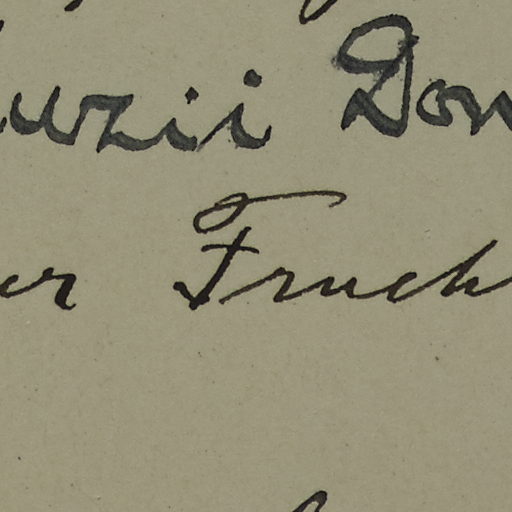 uzii Don
er Fruch